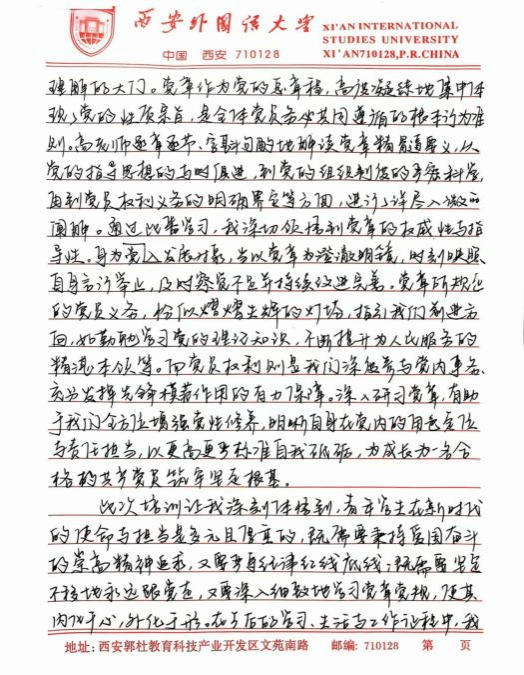 西安外国语大学
XI'AN INTERNATIONAL
STUDIES UNIVERSITY
中国 西安 710128
XI'AN710128,P.R.CHINA
理解的大门。党章作为党的总章程，高浓凝练地集中体
现了党的性质宗旨，是全体党员务必共同遵循的根本行为准
则。高老师逐章逐节、字斟句酌地解读党章精髓要义，从
党的指导思想的与时俱进，到党的组织制度的严密科学，
再到党员权利义务的明确界定等方面，进行了详尽入微的
阐释。通过此番学习，我深切领悟到党章的权威性与指
导性。身为党入发展对象，当以党章为澄澈明镜，时刻映照
自身言行举止，及时察觉不足并持续改进完善。党章所规定
的党员义务，恰似熠熠生辉的灯塔，指引我们前进方
向，如勤勉学习党的理论知识，不断提升为人民服务的
精湛本领等。而党员权利则是我们深度参与党内事务、
充分发挥先锋模范作用的有力保障。深入研习党章，有助
于我们全方位增强党性修养，明晰自身在党内的角色定位
与责任担当，以更高更严标准自我砥砺，为成长为一名合
格的共产党员筑牢坚定根基。
此次培训让我深刻体悟到，青年学生在新时代
的使命与担当是多元且厚重的，既需要秉持爱国奋斗
的崇高精神追求，又要严守纪律红线底线；既需要坚定
不移地永远跟党走，又要深入细致地学习党章党规，使其
内化于心，外化于形。在今后的学习、生活与工作过程中，我
地址: 西安郭杜教育科技产业开发区文苑南路 邮编: 710128 第 页